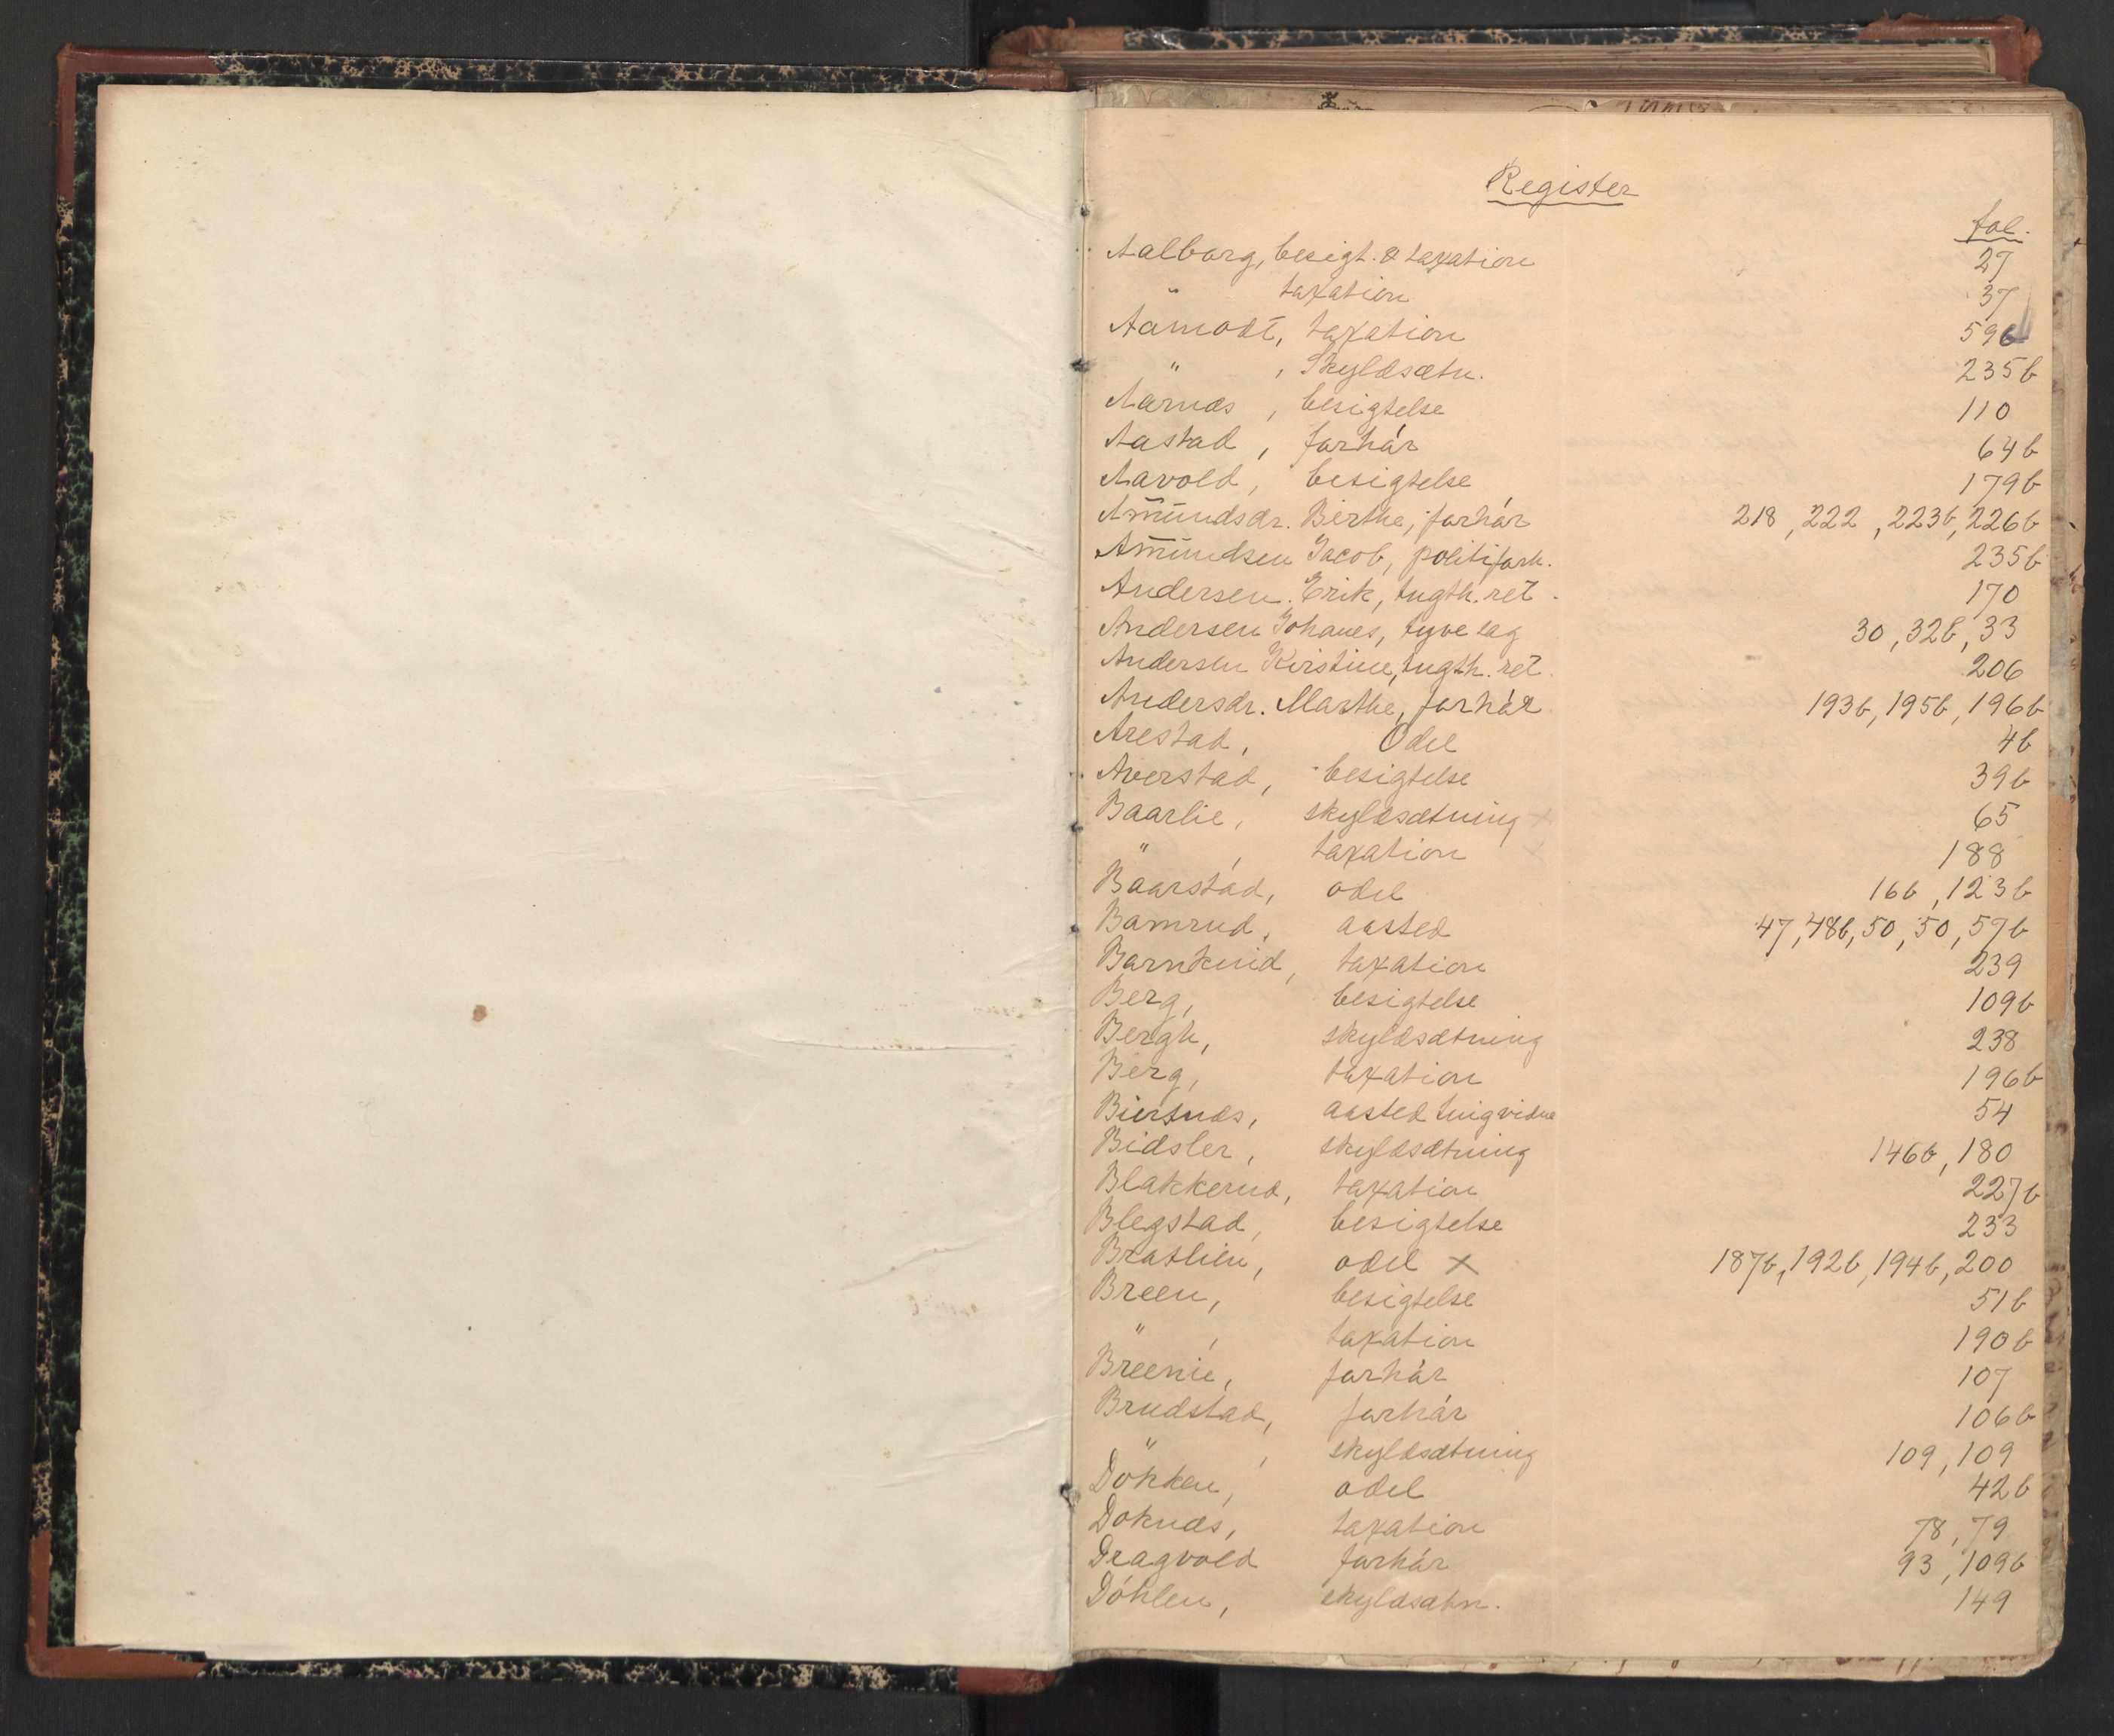 Register
fol.
Aalborg, besigt. & taxation 27
" taxation 37
Aamodt, taxation 59b
" , Skyldsætn. 235b
Aarnæs , besigtelse 110
Aastad , forhör 64b
Aavold, besigtelse 179b
Amundsdr. Birthe, forhör 218, 222, 223b, 226b
Amundsen Jacob, politiforh. 235b
Andersen Erik, tugth. ret. 170
Andersen Johanes, tyve sag 30, 32b, 33
Andersen Kirstine, tugth. ret. 206
Andersdr. Marthe, forhör 193b, 195b, 196b
Arestad, Odel 4b
Averstad, besigtelse 39b
Baarlie, skyldsætning 65
" , taxation 188
Baarstad, odel 16b, 123b
Bamrud, aasted 47, 48b, 50, 50, 57b
taxation 239
Berg, besigtelse 109b
Bergh, skyldsætning 238
Berg, taxation 196b
Biertnæs, aasted tingvidne 54
Bidsler, skyldsætning 146b, 180
Blakkerud, taxation 227b
Blegstad, besigtelse 233
Bratlien, odel x 187b, 192b, 194b, 200
Breen, besigtelse 51b
" , taxation 190b
Breenie, forhör 107
Brudstad, forhör 106b
" , skyldsætning 109, 109
Dökken, odel 42b
Doknæs, taxation 78, 79
Dragvold forhör 93, 109b
Döhlen, skyldsætn. 149